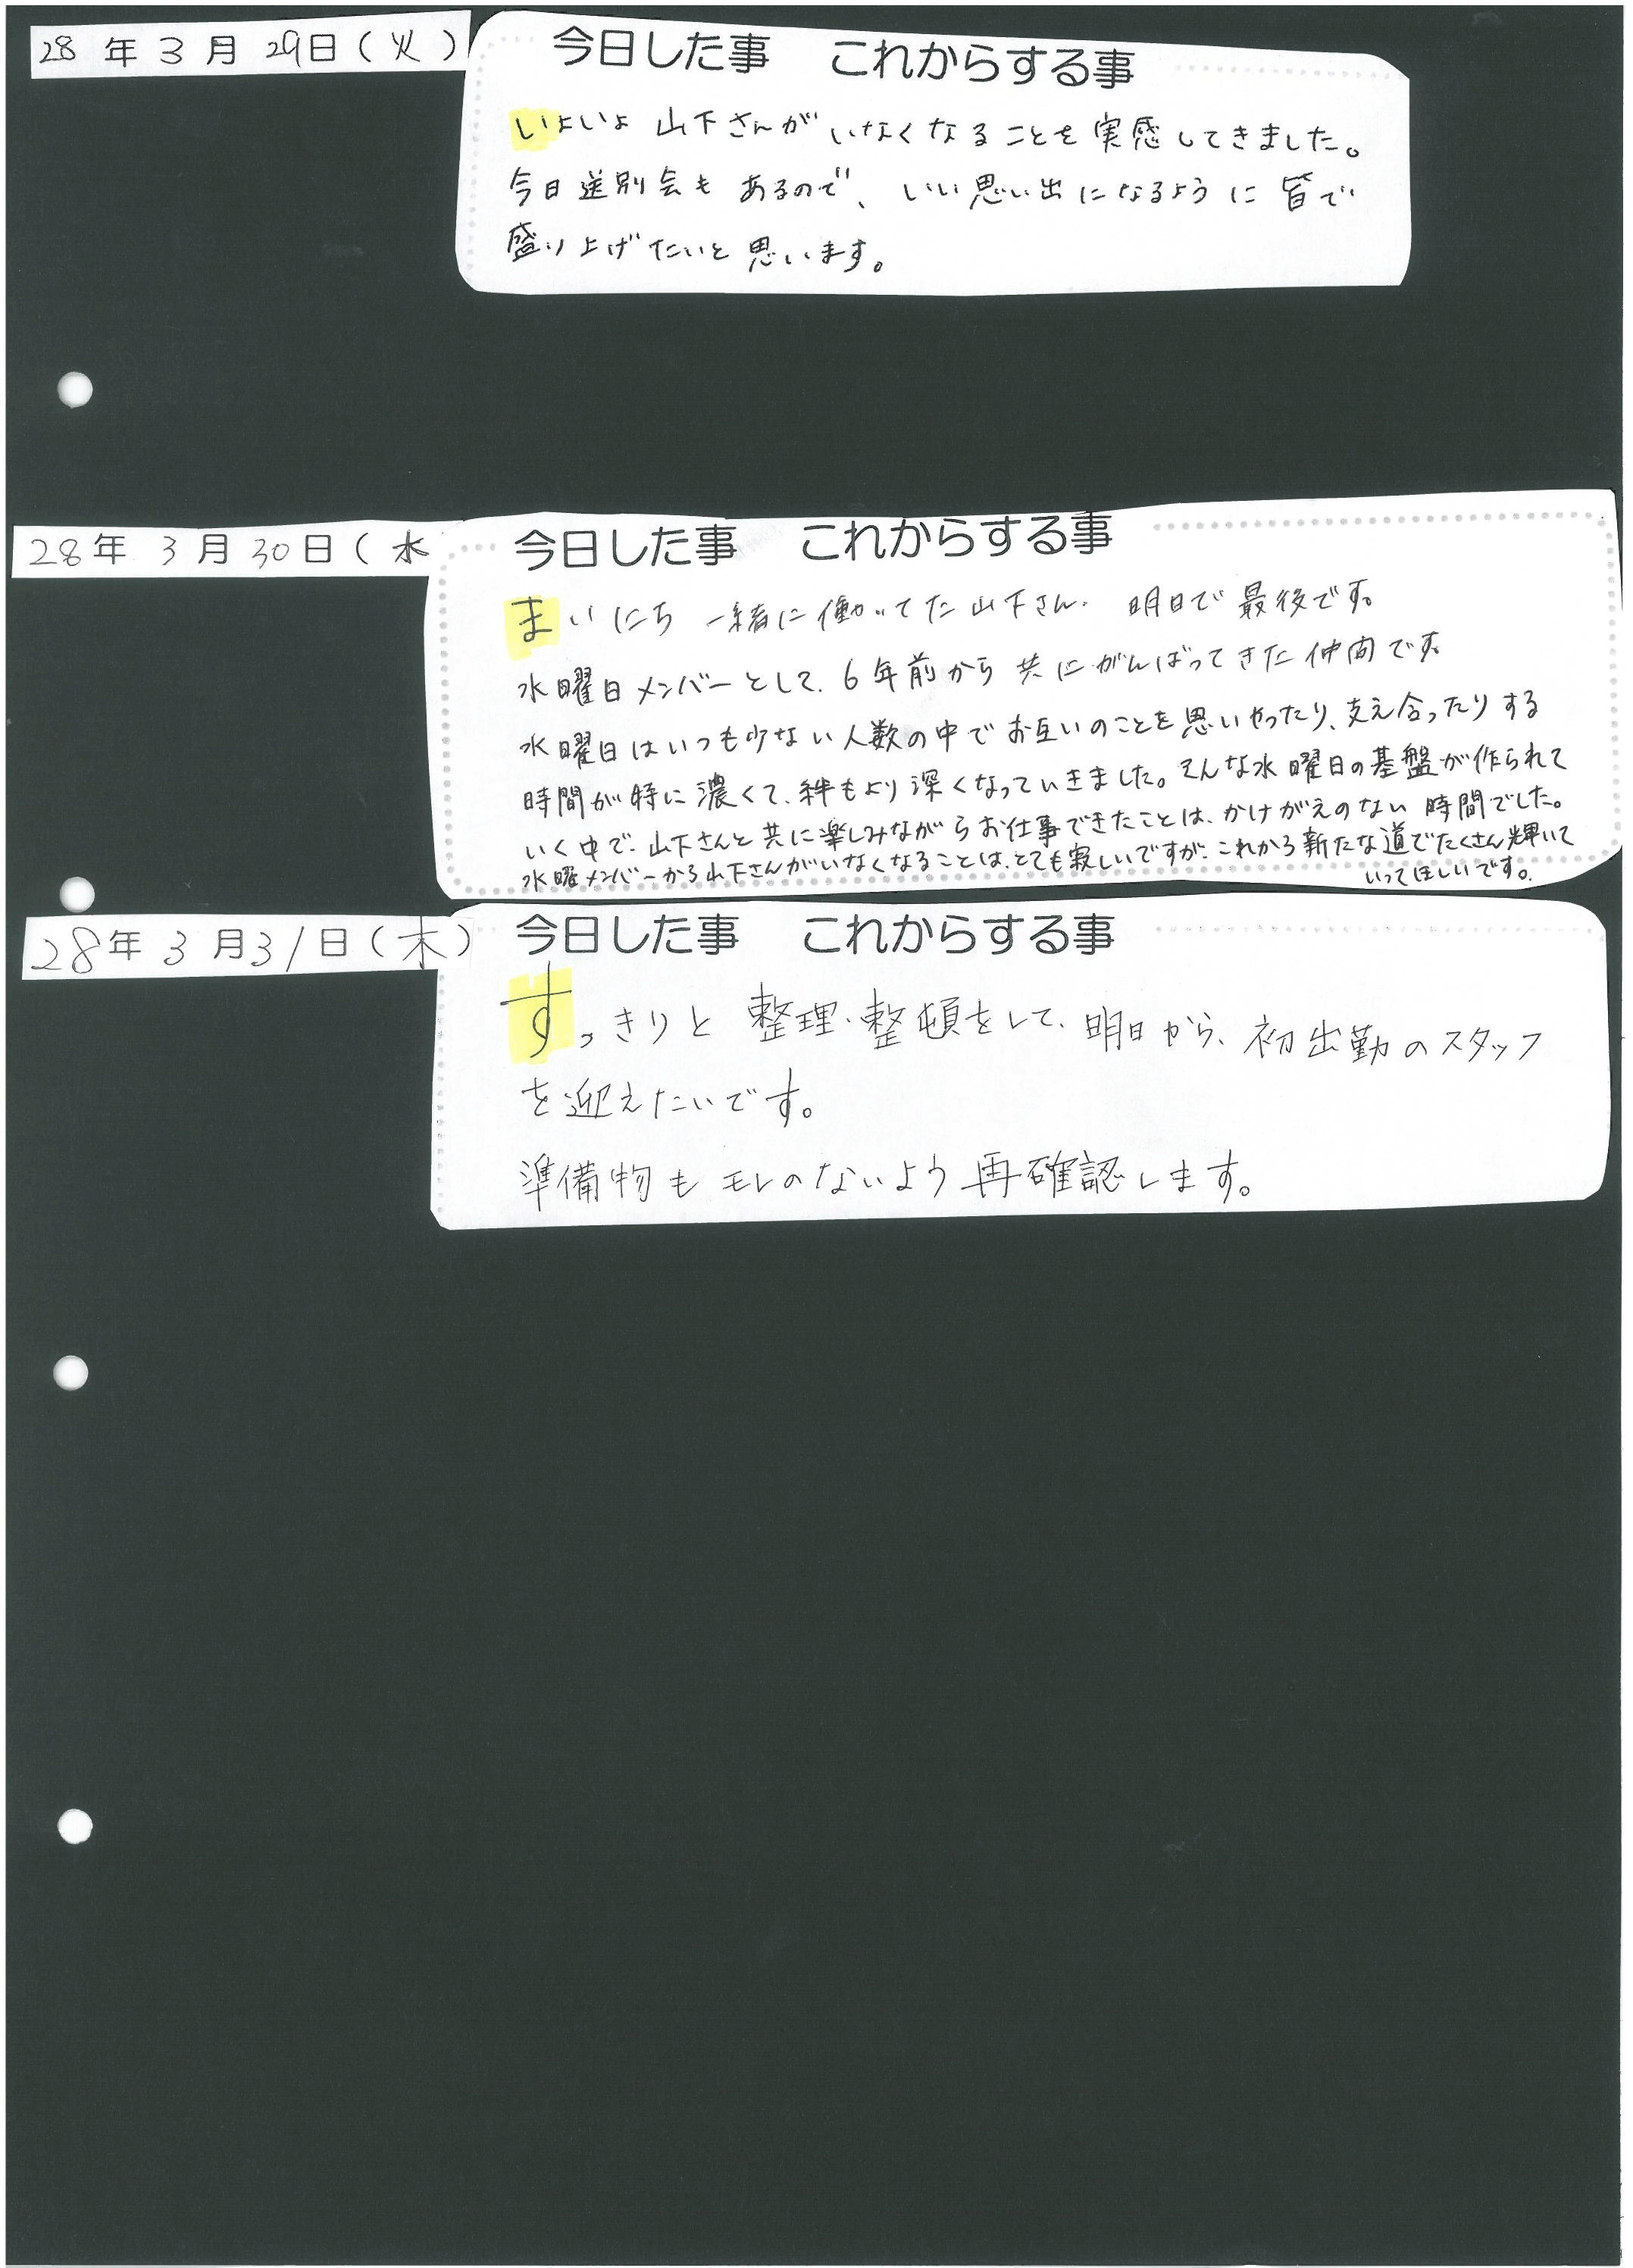 28年3月29日(火)
今日した事 これからする事
いよいよ山下さんがいなくなることを実感してきました。
今日送別会もあるので、いい思い出になるように皆で
盛り上げたいと思います。
28年3月30日(水
今日した事 これからする事
まいにち一緒に働いてた山下さん、明日で最後です。
水曜日メンバーとして、6年前から共にがんばってきた仲間です。
水曜日はいつも少ない人数の中でお互いのことを思いやったり、支え合ったりする
時間が特に濃くて、絆もより深くなっていきました。そんな水曜日の基盤が作られて
いく中で、山下さんと共に楽しみながらお仕事できたことは、かけがえのない時間でした。
水曜メンバーから山下さんがいなくなることは、とても寂しいですが、これから新たな道でたくさん輝いて
いってほしいです。
28年3月31日(木)
今日した事 これからする事
すっきりと整理・整頓をして、明日から、初出勤のスタッフ
を迎えたいです。
準備物もモレのないよう再確認します。